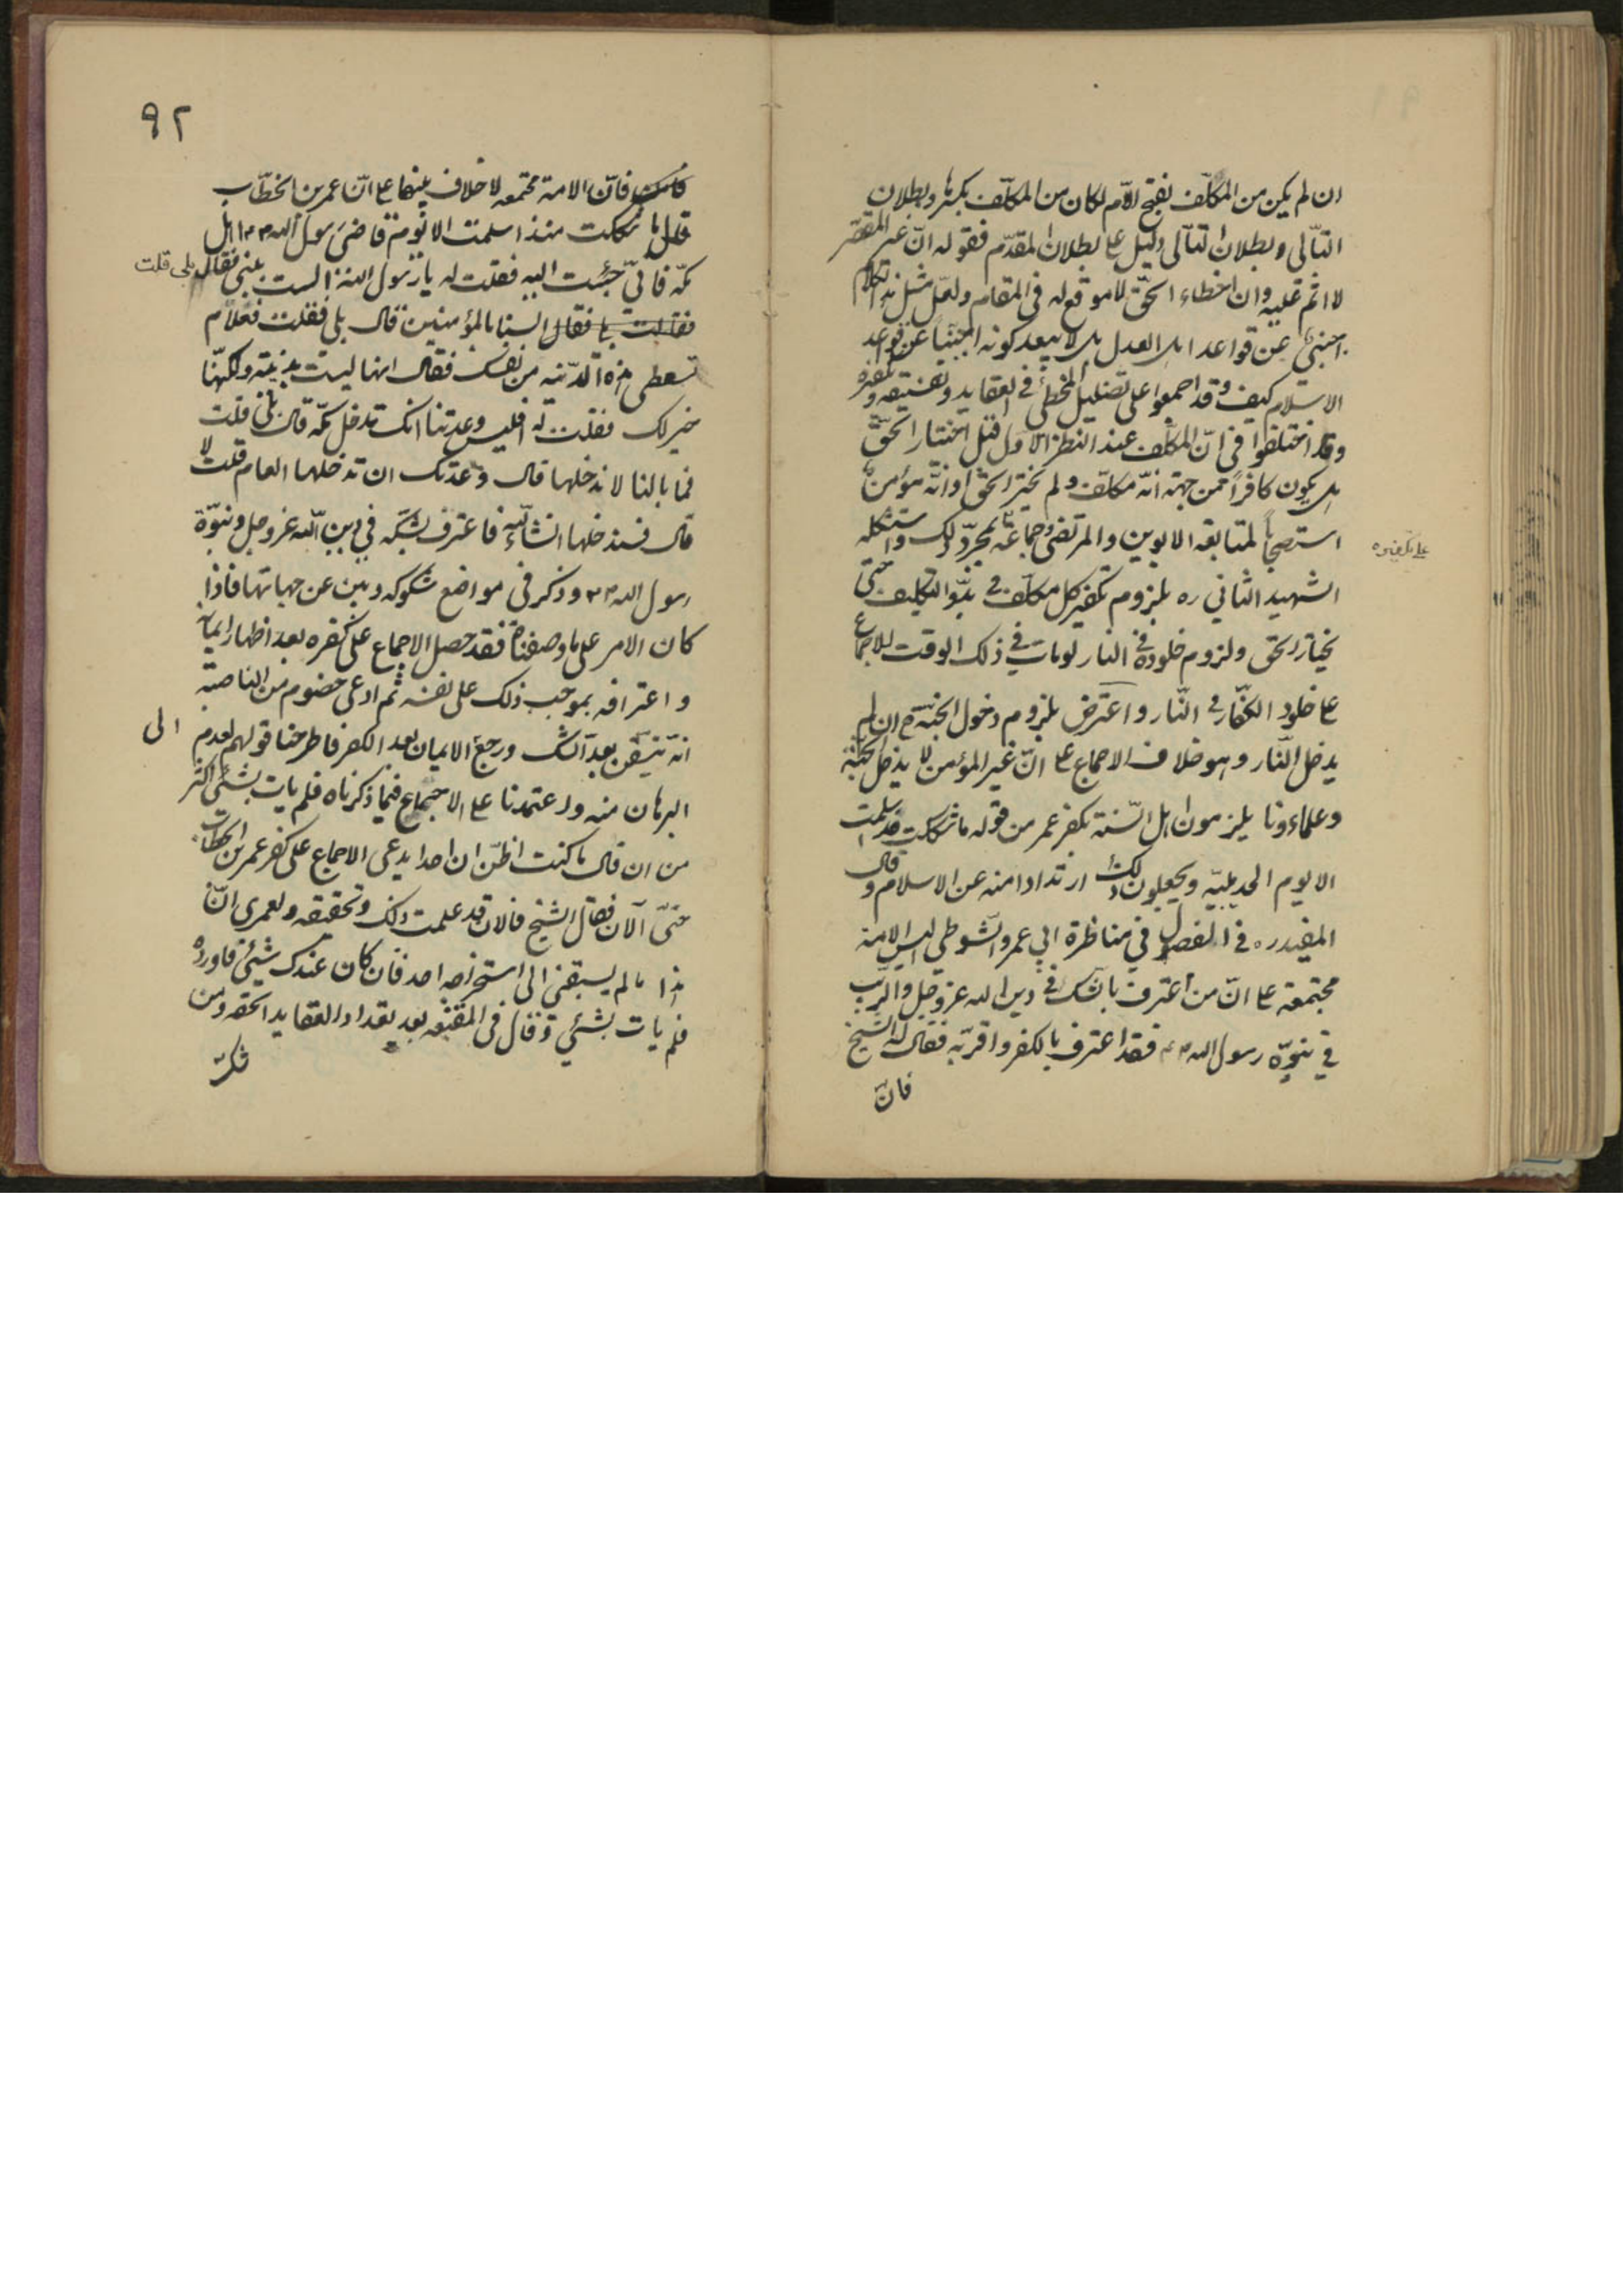 ان لم يكن من المكلّف بفتح اللّام لكان من المكلّف بكسرها وبطلان
التّالى وبطلان التّالى دليل على بطلان المقدّم فقوله انّ غير المقصّر
لا اثم عليه وان اخطاء الحقّ لا موقع له فى المقام ولعلّ مثل هذا الكلام
اجنبىّ عن قواعد اهل العدل بل لا يبعد كونه اجنبيّاً عن قواعد
الاسلام كيف وقد اجمعوا على تضليل المخطئ فى العقايد وتفسيقه وتكفيره
وقد اختلفوا فى انّ المكلّف عند النظر الاوّل قبل اختيار الحقّ
هل يكون كافراً من جهة انّه مكلّف ولم يختر الحقّ او انّه مؤمن
استصحاباً لمتابعة الابوين والمرتضى وجماعة بمجرّد ذلك واستشكله
على تكفيره
الشهيد الثاني ره بلزوم تكفير كل مكلّف فى بدو التكليف حتّى
يختار الحق ولزوم خلوده فى النار لو مات فى ذلك الوقت للاجماع
على خلود الكفّار فى النّار واعترض بلزوم دخول الجنّة ح ان لم
يدخل النّار وهو خلاف الاجماع على انّ غير المؤمن لا يدخل الجنّة
وعلماءونا يلزمون اهل السّنة بكفر عمر من قوله ما شككت منذ اسلمت
الا يوم الحديبيّه ويجعلون ذلك ارتدادا منه عن الاسلام وقال
المفيد ره فى الفصول فى مناظرة ابي عمرو الشّوطي اليس الامة
مجتمعة على انّ من اعترف بالشّك فى دين الله عز وجل والرّيب
في نبوّة رسول الله ص فقد اعترف بالكفر واقرّ به فقال له الشيخ
فانّ
٩٢
فانّ الامة مجتمعه لا خلاف بينها على انّ عمر بن الخطّاب
قال ما شككت منذ اسلمت الا يوم قاضى رسول الله ص اهل
مكّه فانّى جئت اليه فقلت له يا رسول الله الست بنبى فقال بلى قلت
فقلت بلى فقال السنا بالمؤمنين قال بلى فقلت فعلام
تعطى هذه الدّنيه من نفسك فقال انها ليست بدنيّة ولكنّها
خير لك فقلت له افليس وعدتنا انك تدخل مكّه قال بلى قلت
فما بالنا لا ندخلها قال وعدتك ان تدخلها العام قلت لا
قال فسندخلها انشاء الله فاعترف بشكّه في دين الله عز وجل ونبوّة
رسول الله ص وذكر فى مواضع شكوكه وبين عن جهاتها فاذا
كان الامر على ما وصفناه فقد حصل الاجماع على كفره بعد اظهار ايمانه
واعترافه بموجب ذلك على نفسه ثم ادعى خصوم من الناصبة
انّه تيقّن بعد الشك ورجع الى الايمان بعد الكفر فاطرحنا قولهم لعدم
البرهان منه واعتمدنا على الاجماع فيما ذكرناه فلم يات بشئ اكثر
من ان قال ما كنت اظنّ ان احدا يدعى الاجماع على كفر عمر بن الخطاب
حتّى الآن فقال الشيخ فالان قد علمت ذلك وتحقيقه ولعمرى انّ
هذا ما لم يسبقنى الى استخراجه احد فان كان عندك شيئ فاورده
فلم يات بشئ وقال فى المقنعه بعد تعداد العقايد الحقه ومن